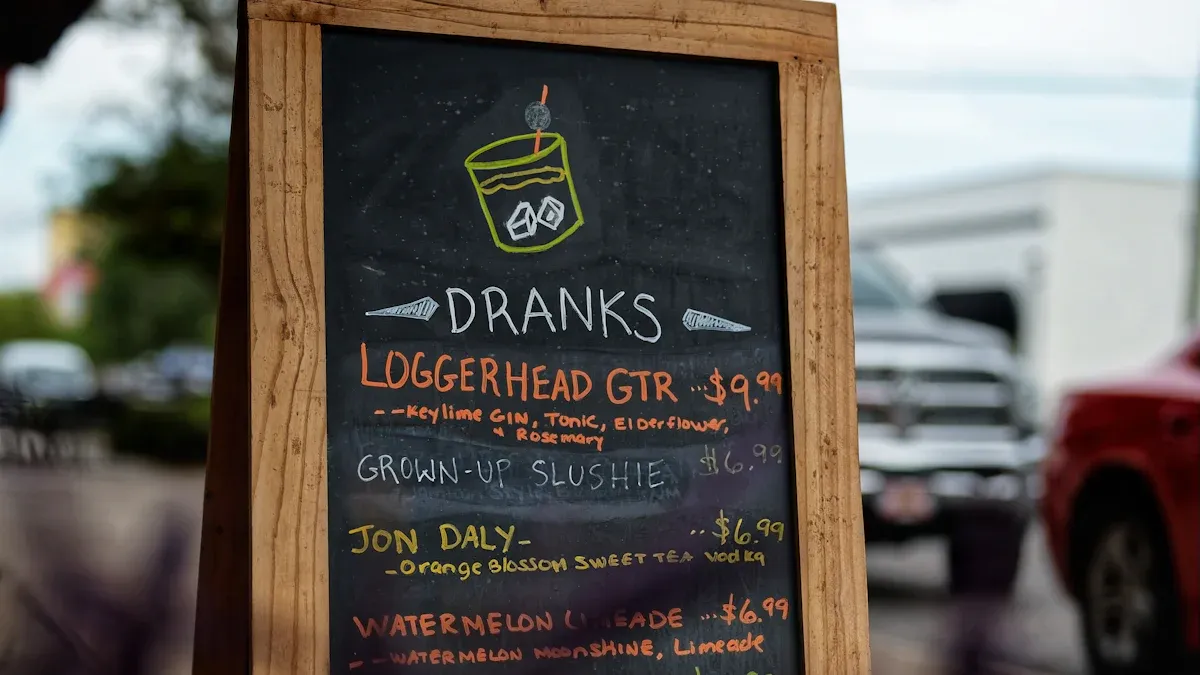 DRANKS
LOGGERHEAD GTR ...$9.99
--Key lime GIN, Tonic, Elderflower,
& Rosemary
GROWN-UP SLUSHIE $6.99
JON DALY- ..$6.99
-Orange Blossom SWEET TEA Vodka
WATERMELON LIMEADE ...$6.99
--WATERMELON MOONSHINE, Limeade